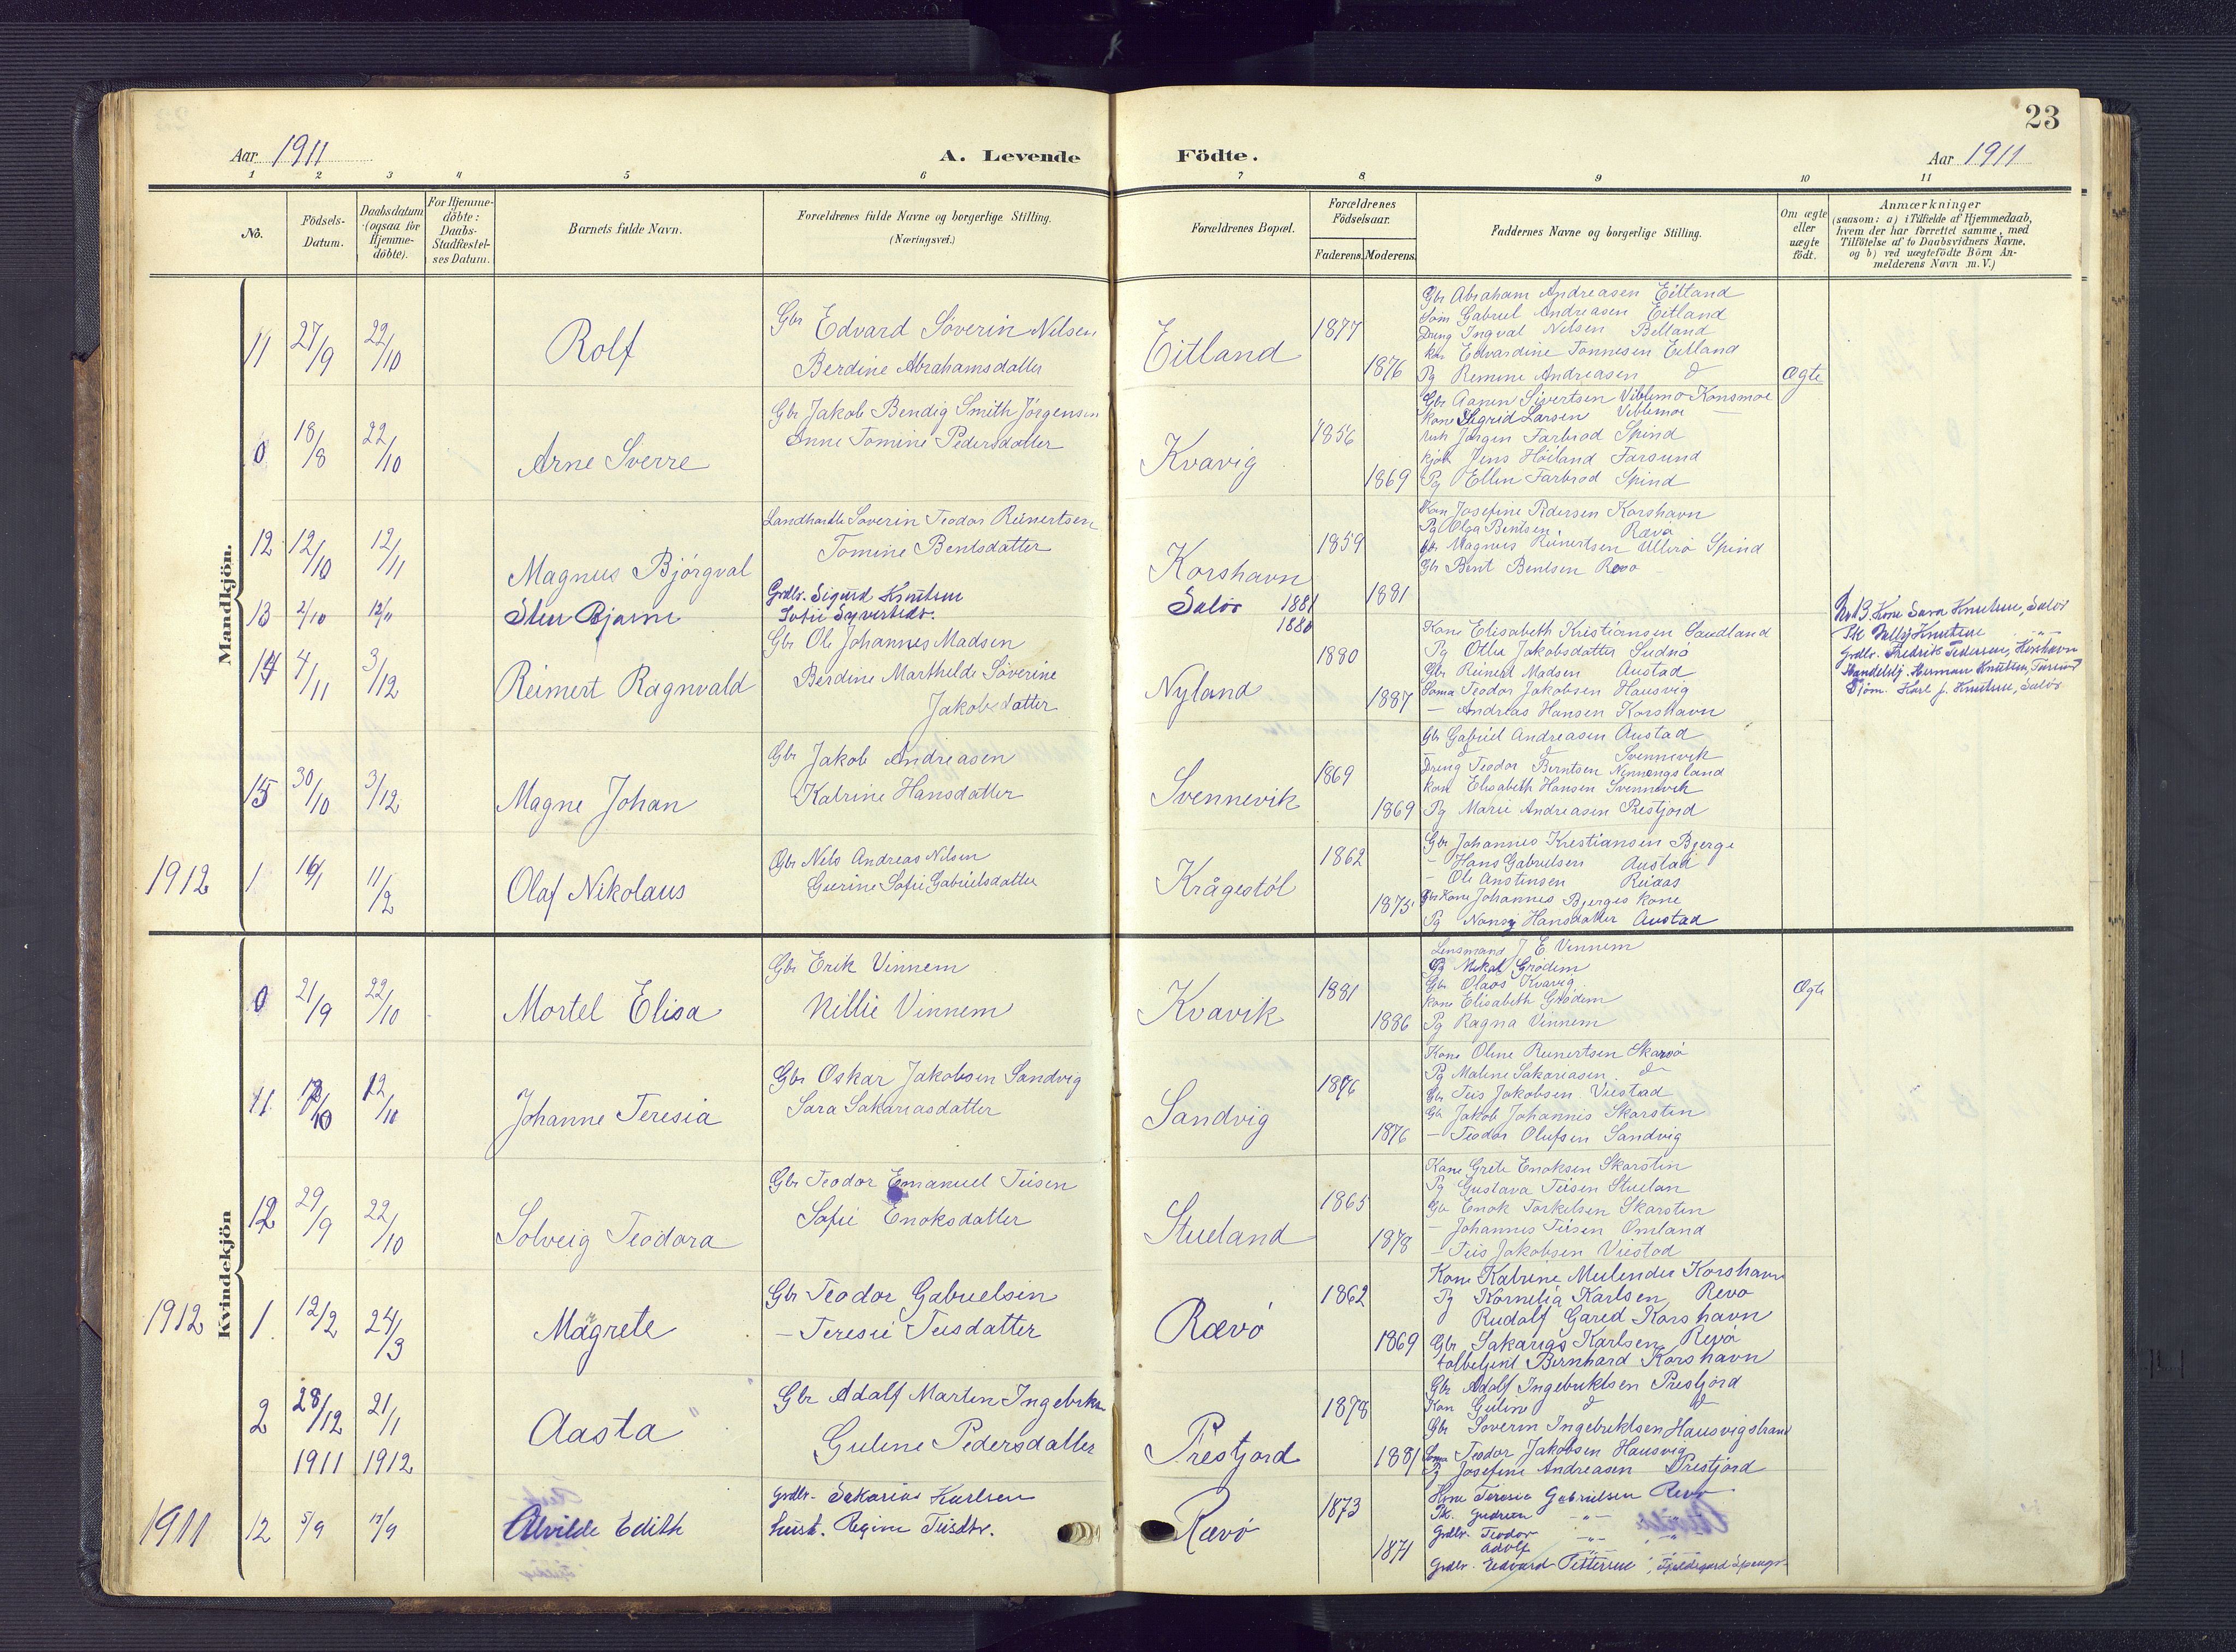 23
Aar 1911
A. Levende
Födte.
Aar 1911
1 2 3 4 5 6 7 8 9 10 11
No.
Födsels-Datum.
Daabsdatum (ogsaa for Hjemme-döbte).
For Hjemme-döbte: Daabs-Stadfæstel-ses Datum.
Barnets fulde Navn.
Forældrenes fulde Navne og borgerlige Stilling.
(Næringsvei.)
Forældrenes Bopæl.
Forældrenes Födselsaar.
Faderens. Moderens.
Faddernes Navne og borgerlige Stilling.
Om ægte eller uægte födt.
Anmærkninger
(saasom: a) i Tilfælde af Hjemmedaab,
hvem der har forrettet samme, med
Tilföielse af to Daabsvidners Navne,
og b) ved uægtefödte Börn An-
melderens Navn m. V.)
Mandkjön.
11 27/9 22/10 Rolf
Gbr Edvard Söverin Nilsen
Berdine Abrahamsdatter
Eitland 1877
1876
Gbr Abraham Andreasen Eitland
Söm Gabriel Andreasen Eitland
Dreng Ingval Nilsen Belland
Kone Edvardine Tönnesen Eitland
Pg Remine Andreasen d
Ægte
0 18/8 22/10 Arne Sverre
Gbr Jakob Bendig Smith Jörgensen
Anne Tomine Pedersdatter
Kvavig 1856
1869
Gbr Aanen Sivertsen Viblemo Konsmoe
Kone Sigrid Larsen Viblemoe
Jörgen Farbrod Spind
Jens Höiland Farsund
Pg Ellen Farbrod Spind
12 12/10 12/11 Magnus Bjórgval
Landhandle Soverin Teodor Reinertsen
Tomine Bentsdatter
Korshavn 1859
1881
Kon Josefine Pedersen Korshavn
Pg Olga Bentsen Rævö
Gbr Magnus Reinertsen Ullerö Spind
Gbr Bent Bentsen Revo
13 2/10 12/11 Sten Bjarne
Grdbr. Sigurd Knutsen
Sofie Syvertsdtr.
Salör 1881
1880
No 13 Kone Sara Knutsen, Salör
Pk Nelly Knutsen "
Grdbr. Fredrik Pedersen, Korshavn
Handelsbj. Herman Knutsen, Farsund
Sjöm. Karl J. Knutsen, Salör
14 4/11 3/12 Reimert Ragnvald
Gbr Ole Johannes Madsen
Berdine Marthilde Söverine
Jakobsdatter
Nyland 1880
1887
Kone Elisabeth Kristiansen Sandland
Pg Otlie Jakobsdatter
Gbr Reinert Madsen Austad
Söma Teodor Jakobsen Hausvig
— Andreas Hansen Korshavn
15 30/10 3/12 Magne Johan
Gbr Jakob Andreasen
Katrine Hansdatter
Svennevik 1869
1869
Gbr Gabriel Andreasen Austad
d d Svennevik
Dreng Teodor Berntsen
Kone Elisabeth Hansen Svennevik
Pg Marie Andreasen Prestjord
1912 1 16/1 11/2 Olaf Nikolaus
Gbr Nels Andreas Nilsen
Gurine Sofie Gabrielsdatter
Krågestöl 1862
1875
Gbr Johannes Kristiansen Bjerge
— Hans Gabrielsen Austad
— Ole Anstensen Reiaas
Gbr Kone Johannes Bjerges kone
Pg Nansy Hansdatter Austad
Kvindekjön
0 21/9 22/10 Mortel Elisa
Gbr Erik Vinnem
Nillie Vinnem
Kvavik 1881
1886
Lensmand J E Vinnem
Pg Mikal Grödem
Gbr Olaos Kvavig
Kone Elisabeth Grödem
Pg Ragna Vinnem
Ægte
11 /10 12/10 Johanne Teresia
Gbr Oskar Jakobsen Sandvig
Sara Sakariasdatter
Sandvig 1876
1876
Kone Oline Reinertsen Skarvö
Pg Maline Sakariasen d
Gbr Teis Jakobsen Viestad
Gbr Jakob Johannis Skarsten
— Teodor Olufsen Sandvig
12 29/9 22/10 Solveig Teodora
Gbr Teodor Emanuel Teisen
Sofie Enoksdatter
Stueland 1865
1878
Kone Grete Enoksen Skarsten
Pg Gustava Teisen Stuelan
Gbr Enok Torkelsen Skarsten
— Johannes Teisen Omland
— Teis Jakobsen Viestad
1912 1 12/2 24/3 Margrete
Gbr Teodor Gabrielsen
— Teresie Teisdatter
Rævö 1862
1869
Kone Katrine Meilender Korshavn
Pg Kornelia Karlsen Revö
Rudolf Gared Korshavn
Gbr Sakarias Karlsen Revö
tolbetjent Bernhard Korshavn
2 28/12 21/1 Aasta
1911 1912
Gbr Adolf Martin Ingebrikts
Guline Pedersdatter
Prestjord 1878
1881
Gbr Adolf Ingebriktsen Prestjord
Kon Guline d d
Gbr Söverin Ingebriktsen Hausvigstrand
Söma Teodor Jakobsen Hausvig
Pg Josefine Andreasen Prestjord
1911 12 5/9 17/9 Alvilde Edith
Grdbr. Sakarias Karlsen
hust. Regine Teisdtr.
Rævö 1873
1871
Kone Teresie Gabrielsen Revö
Pk. Gudrun —"—
Grdbr. Teodor —"— "
Adolf —"—
Grdbr. Edvard Pettersen